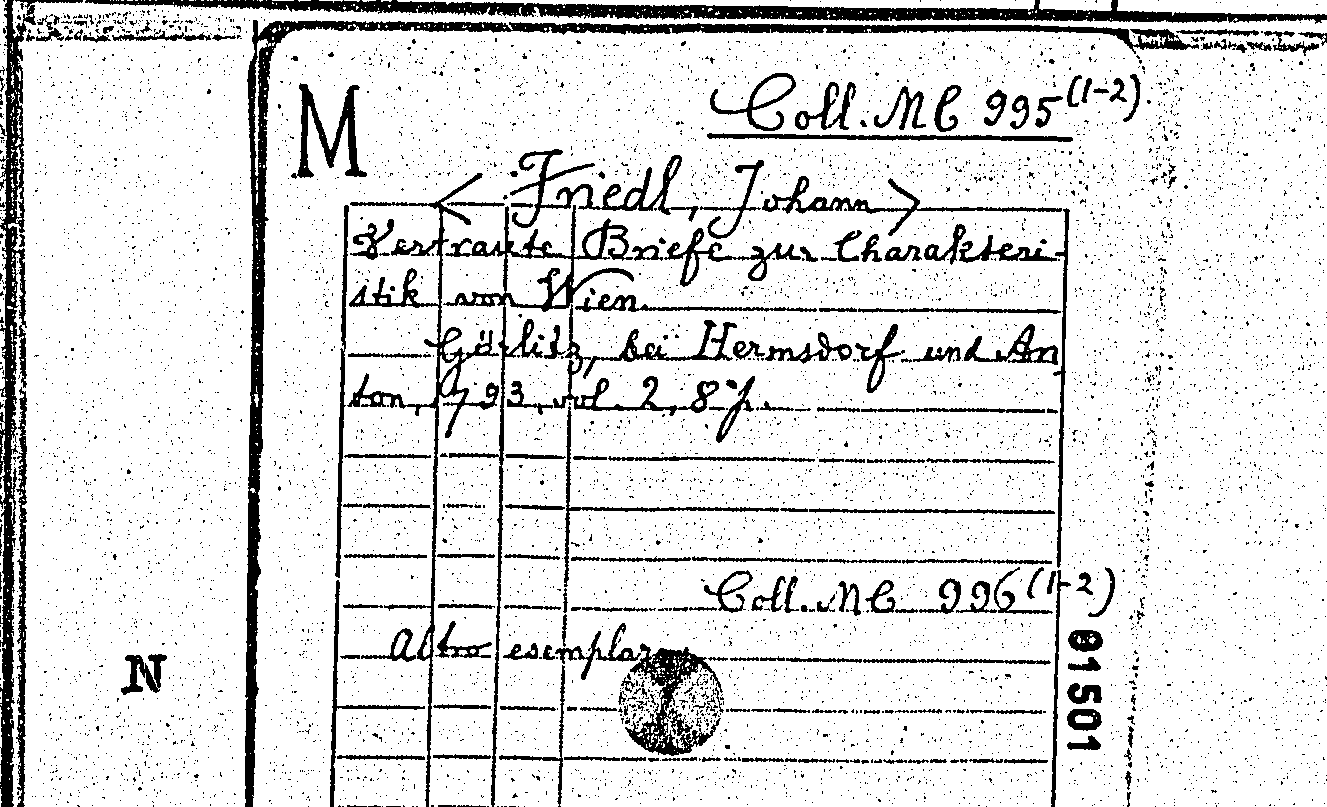 M
Coll. MC 995 (1-2)
<Friedl, Johann>
Vertraute Briefe zur Charakteri-
stik von Wien.
Görlitz, bei Hermsdorf und An
ton, 1793, vol. 2, 8°/.
Coll. MC 996 (1-2)
Altro esemplare
N
01501